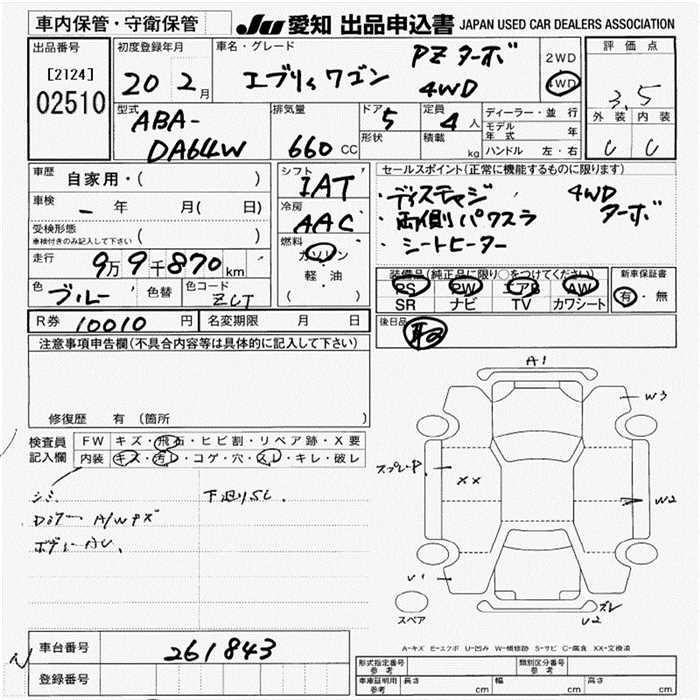 車内保管・守衛保管
JU 愛知 出品申込書 JAPAN USED CAR DEALERS ASSOCIATION
出品番号
[2124]
02510
初度登録年月
20 2月
車名・グレード
エブリィワゴン
PZ ターボ
4WD
2WD
4WD
評価点
3.5
外装 内装
C C
型式
ABA-
DA64W
排気量
660 CC
ドア 5
形状
定員 4人
積載 kg
ディーラー・並行
モデル年式 年
ハンドル 左・右
車歴 自家用・( )
車検 ー 年 月( 日)
受検形態
車検付きのみ記入して下さい ( )
走行 9万9千870km
色 ブルー 色替 色コード ZCT
シフト
IAT
冷房
AAC
燃料
ガソリン
軽・油
( )
セールスポイント(正常に機能するものに限ります)
・ディスチャジ 4WD
・両側パワスラ ターボ
・シートヒーター
装備品(純正品に限り○をつけてください)
PS PW エアB AW
SR ナビ TV カワシート
新車保証書
有・無
後日品
取
R券 10010 円 名変期限 月 日
注意事項申告欄(不具合内容等は具体的に記入して下さい)
修復歴 有(箇所
検査員
記入欄
FW キズ・飛石・ヒビ割・リペア跡・X要
内装 キズ・汚レ・コゲ・穴・スレ・キレ・破レ
シミ
下廻りSC.
A/W キズ
A1
W3
スプレーP
XX
W2
U1
スペア
ズレ
U2
A-キズ E-エクボ U-凹み W-補修跡 S-サビ C-腐食 XX-交換済
車台番号 261843
登録番号
形式指定番号 参考
類別区分番号 参考
車庫証明用 参考 長さ cm 幅 cm 高さ cm